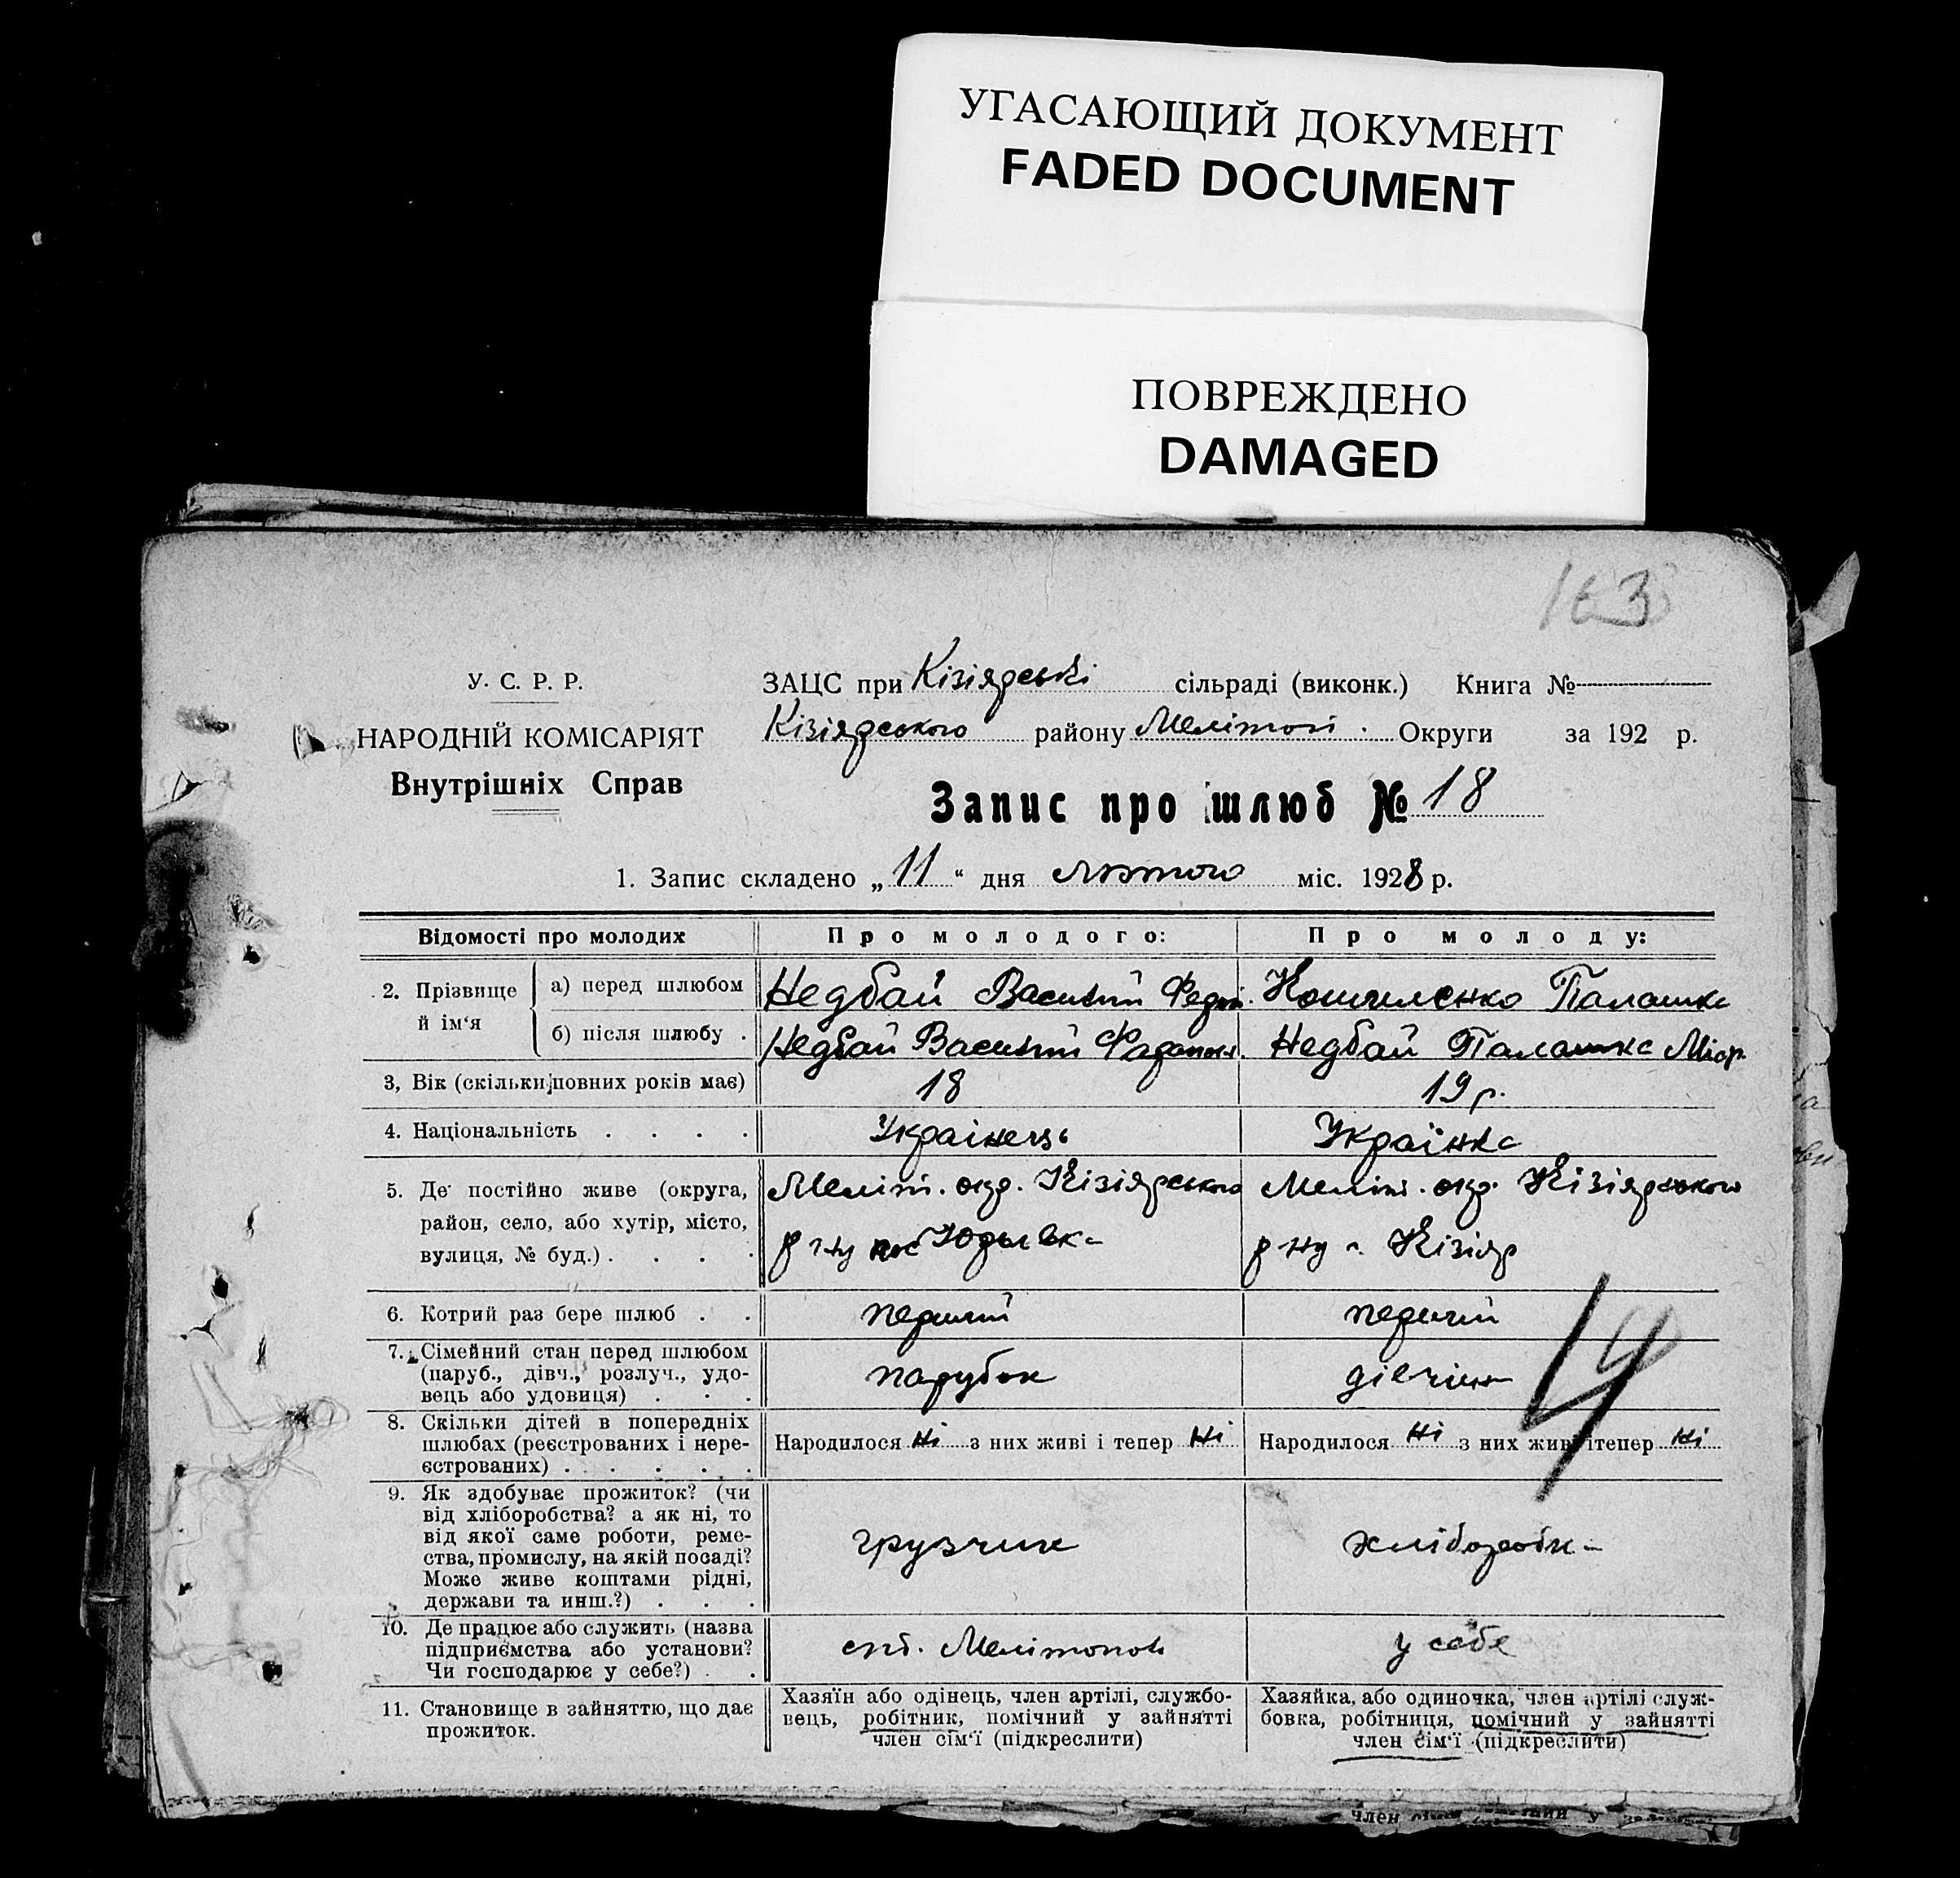 УГАСАЮЩИЙ ДОКУМЕНТ
FADED DOCUMENT
ПОВРЕЖДЕНО
DAMAGED
163
У. С. Р. Р.
НАРОДНІЙ КОМІСАРІЯТ
Внутрішніх Справ
ЗАЦС при Кізіярські сільраді (виконк.) Книга №
Кізіярського району Меліто́п. Округи за 192 р.
Запис про шлюб № 18
1. Запис складено „11“ дня лютого міс. 1928 р.
Відомості про молодих
Про молодого:
Про молоду:
2. Прізвище й ім‘я
а) перед шлюбом
Недбай Василий Федот.
Палашка
б) після шлюбу .
Недбай Василий
Недбай Палашка
3, Вік (скільки повних років має)
18
19 р.
4. Національність . . . .
Українець
Українка
5. Де постійно живе (округа,
район, село, або хутір, місто,
вулиця, № буд.) . . . .
Меліт. окр. Кізіярського
р-ну Юрьевка
Меліт. окр. Кізіярського
р-ну с. Кізіяр
6. Котрий раз бере шлюб . .
перший
перший
7. Сімейний стан перед шлюбом
(паруб., дівч., розлуч., удо-
вець або удовиця) . . .
парубок
дівчина
14
8. Скільки дітей в попередніх
шлюбах (реєстрованих і нере-
єстрованих) . . . . .
Народилося Ні з них живі і тепер Ні
Народилося Ні з них живі і тепер Ні
9. Як здобуває прожиток? (чи
від хліборобства? а як ні, то
від якої саме роботи, реме-
ства, промислу, на якій посаді?
Може живе коштами рідні,
держави та инш.?) . . .
грузчик
хліборобка
10. Де працює або служить (назва
підприємства або установи?
Чи господарює у себе?) . .
Мелітополь
у себе
11. Становище в зайняттю, що дає
прожиток.
Хазяїн або одінець, член артілі, службо-
вець, робітник, помічний у зайнятті
член сім‘ї (підкреслити)
Хазяйка, або одиночка, член артілі служ-
бовка, робітниця, помічний у зайнятті
член сім‘ї (підкреслити)